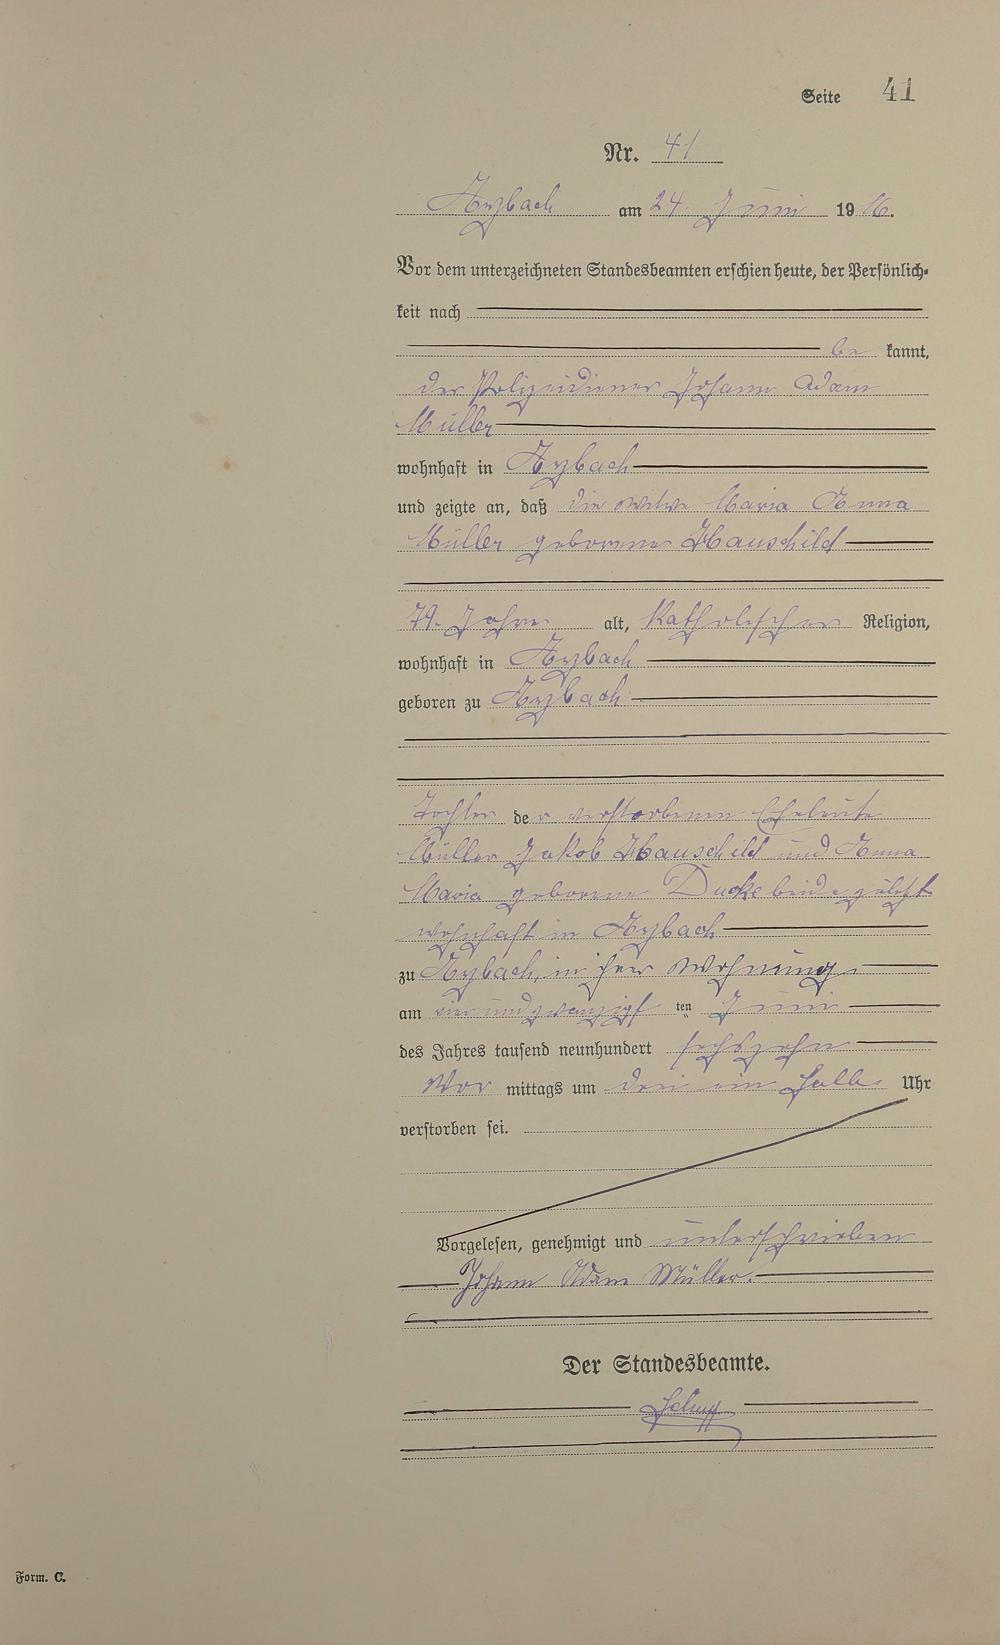 Seite 41
Nr. 41
Arzbach am 24. Juni 1916.
Vor dem unterzeichneten Standesbeamten erschien heute, der Persönlich-
keit nach
be kannt,
der Polizeidiener Johann Adam
Müller
wohnhaft in Arzbach
und zeigte an, daß die Witwe Maria Anna
Müller geborene Hauschild
79. Jahre alt, katholischer Religion,
wohnhaft in Arzbach
geboren zu Arzbach
Tochter der verstorbenen Eheleute
Müller Jakob Hauschild und Anna
Maria geborene Ducke beide zuletzt
wohnhaft in Arzbach
zu Arzbach, in ihrer Wohnung
am vierundzwanzigsten Juni
des Jahres tausend neunhundert sechszehn
Vor mittags um drei ein halb Uhr
verstorben sei.
Vorgelesen, genehmigt und unterschrieben
Johann Adam Müller.
Der Standesbeamte.
Form. C.